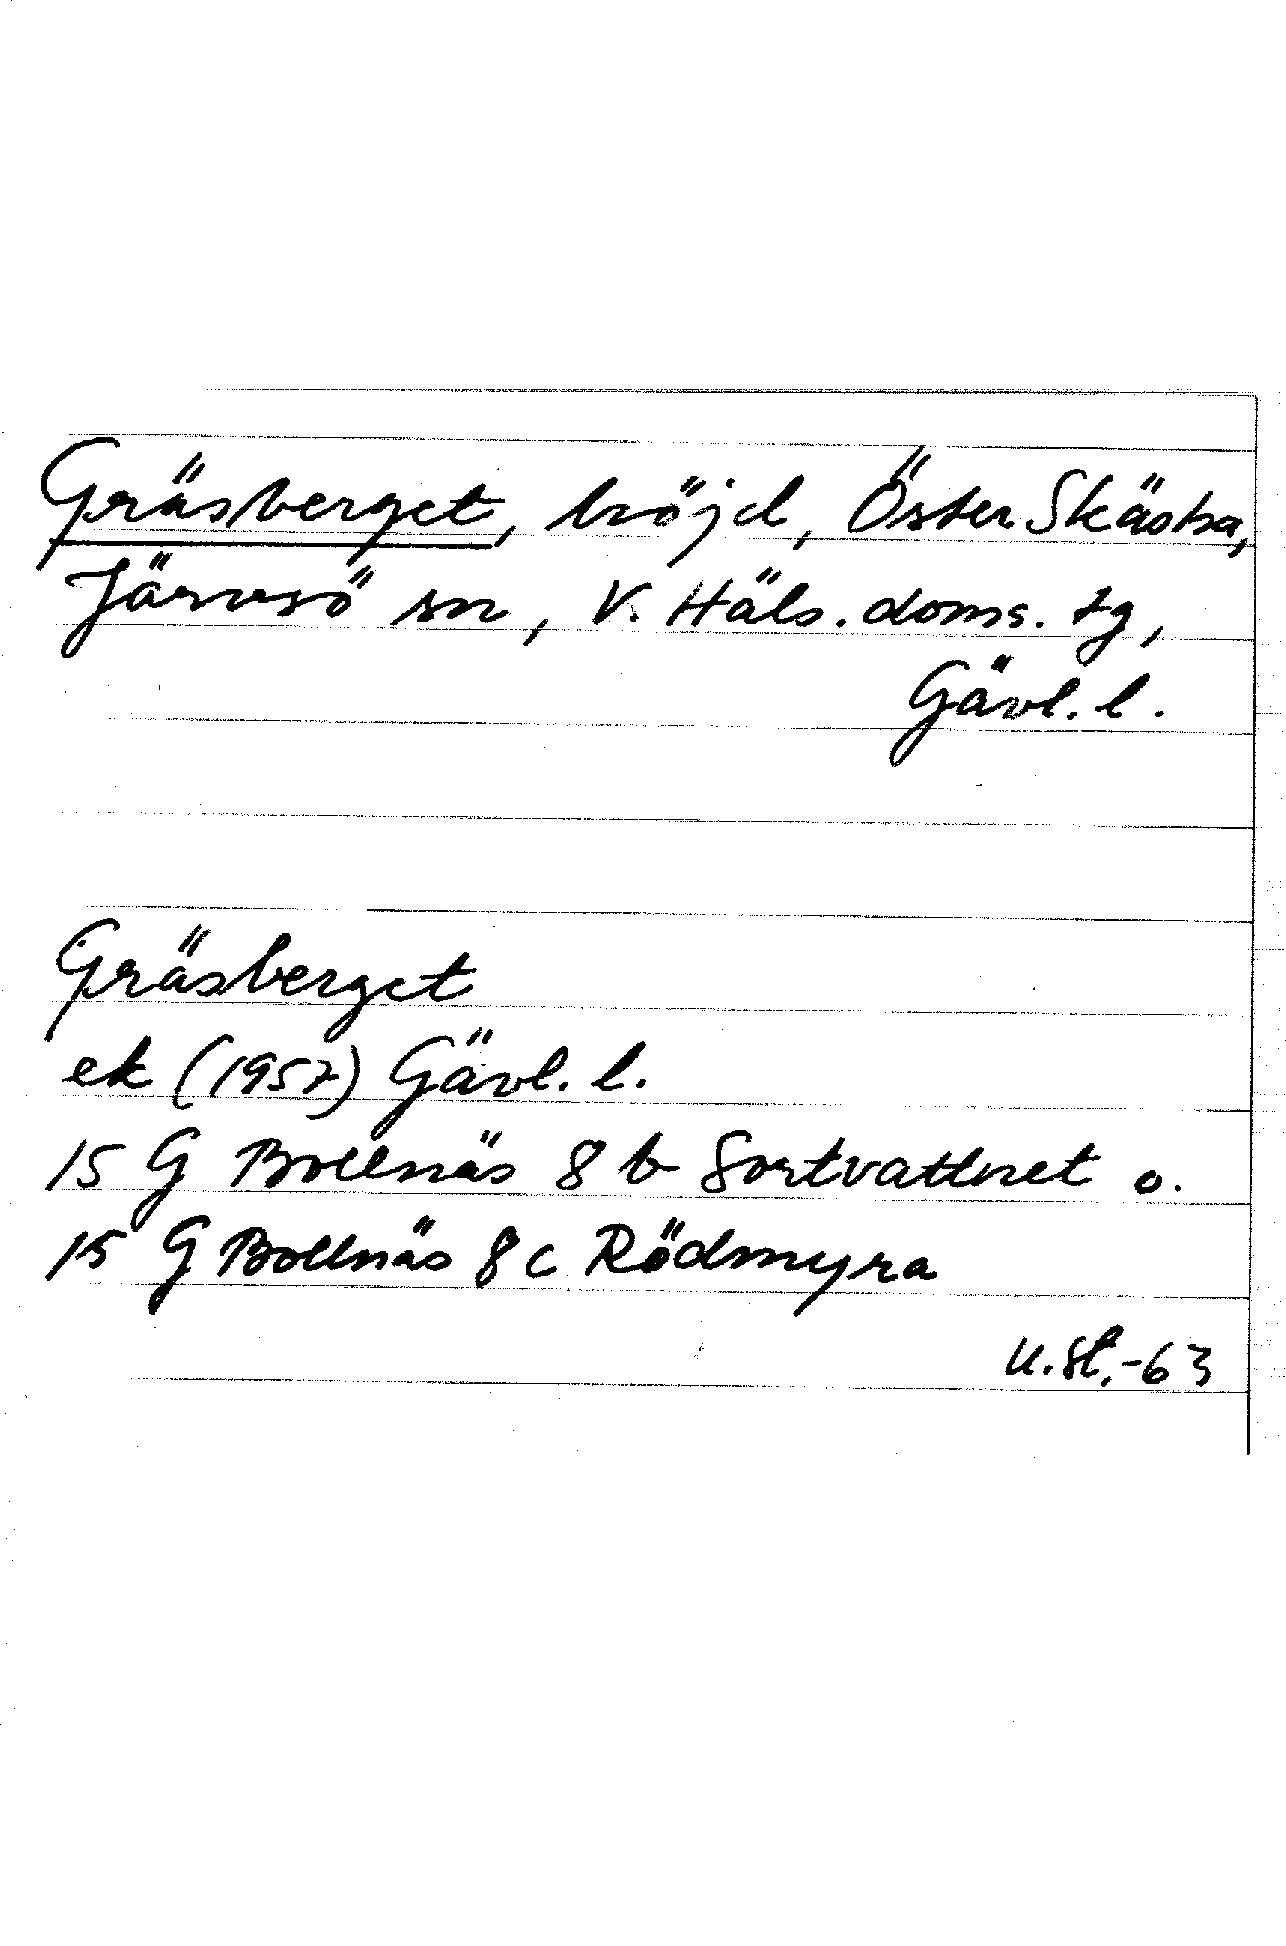 Gräsberget, höjd, Öster Skästra,
Järvsö sn, V. Häls. doms. tg,
Gävl. l.
Gräsberget
ek (1957) Gävl. l.
15 G Bollnäs 8 b Sortvattnet o.
15 G Bollnäs 8 c Rödmyra
U. St. -63